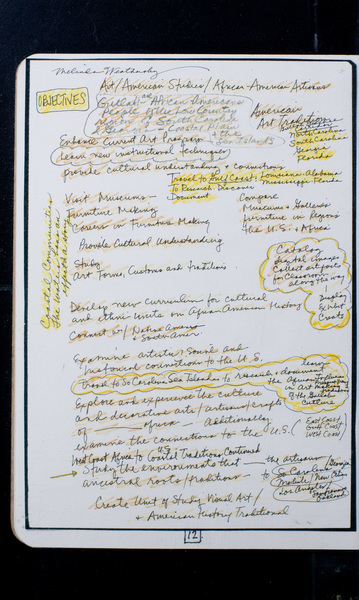 Melinda Weathersby
Art/American Studies/African-American Artisans
OBJECTIVES
Gullah African Americans
People of the Low Country
Region of South Carolina
& Georgia Coastal Plain
& the Sea Islands
American
Art
North Carolina
South Carolina
Georgia
Florida
Enhance Current Art Program
Learn new instructional techniques
provide cultural understanding & connections
Travel to Gulf Coast, Louisiana, Alabama
Mississippi, Florida
To Research Discover
Document
Visit Museums
Furniture Making
Careers in Furniture Making
Provide Cultural Understanding
Compare
Museums & Galleries
furniture in Regions
the U.S. & Africa
Study
Art Forms, Customs and traditions
Catalog
digital images
collect artifacts
for Classroom
along the way
Coastal Communities
Develop new Curriculum for cultural
and ethnic units on African American History
Connect w/ Native America
& South Amer
Display
Exhibit
Create
Examine artistic sound and
historical connections to the U.S.
Travel to So Carolina Sea Islands to research & document
the African Influence
in Art
of the Gullah
Culture
Explore and experience the culture
and decorative arts/artisans/crafts
of Africa — Additionally
examine the connections to the U.S.
East Coast/
Gulf Coast
West Coast
West Coast Africa to Coastal U.S. Traditions Continued
Study the environments that the artisans
ancestral roots/traditions to So Carolina/Georgia
Mobile/New Orleans
Los Angeles/
Oakland
Create Unit of Study Visual Art/
& American History Traditional
12